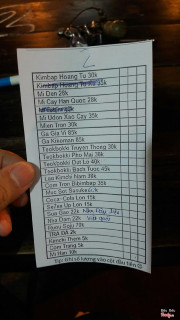 2
Kimbap Hoang Tu 30k
Kimbap Hoang Tu 35k
Mi Den 28k
Mi Cay Han Quoc 28k
Mi Udon Xao Cay 35k
Mien Tron 30k
Ga Gia Vi 65k
Ga Kikoman 65k
Teokbokki Truyen Thong 30k
Teokbokki Pho Mai 38k
Teokbokki Dut Lo 40k
Teokbokki Bach Tuoc 45k
Lau Kimchi Nam 38k
Com Tron Bibimbap 35k
Coca-Cola Lon 15k
Se7en Up Lon 15k
Sua Gao 22k
Hoa Dam 22k
Ruou Soju 70k
TRA DA 2k
Kimchi Them 5k
Com Trang 5k
Mi Han 10k